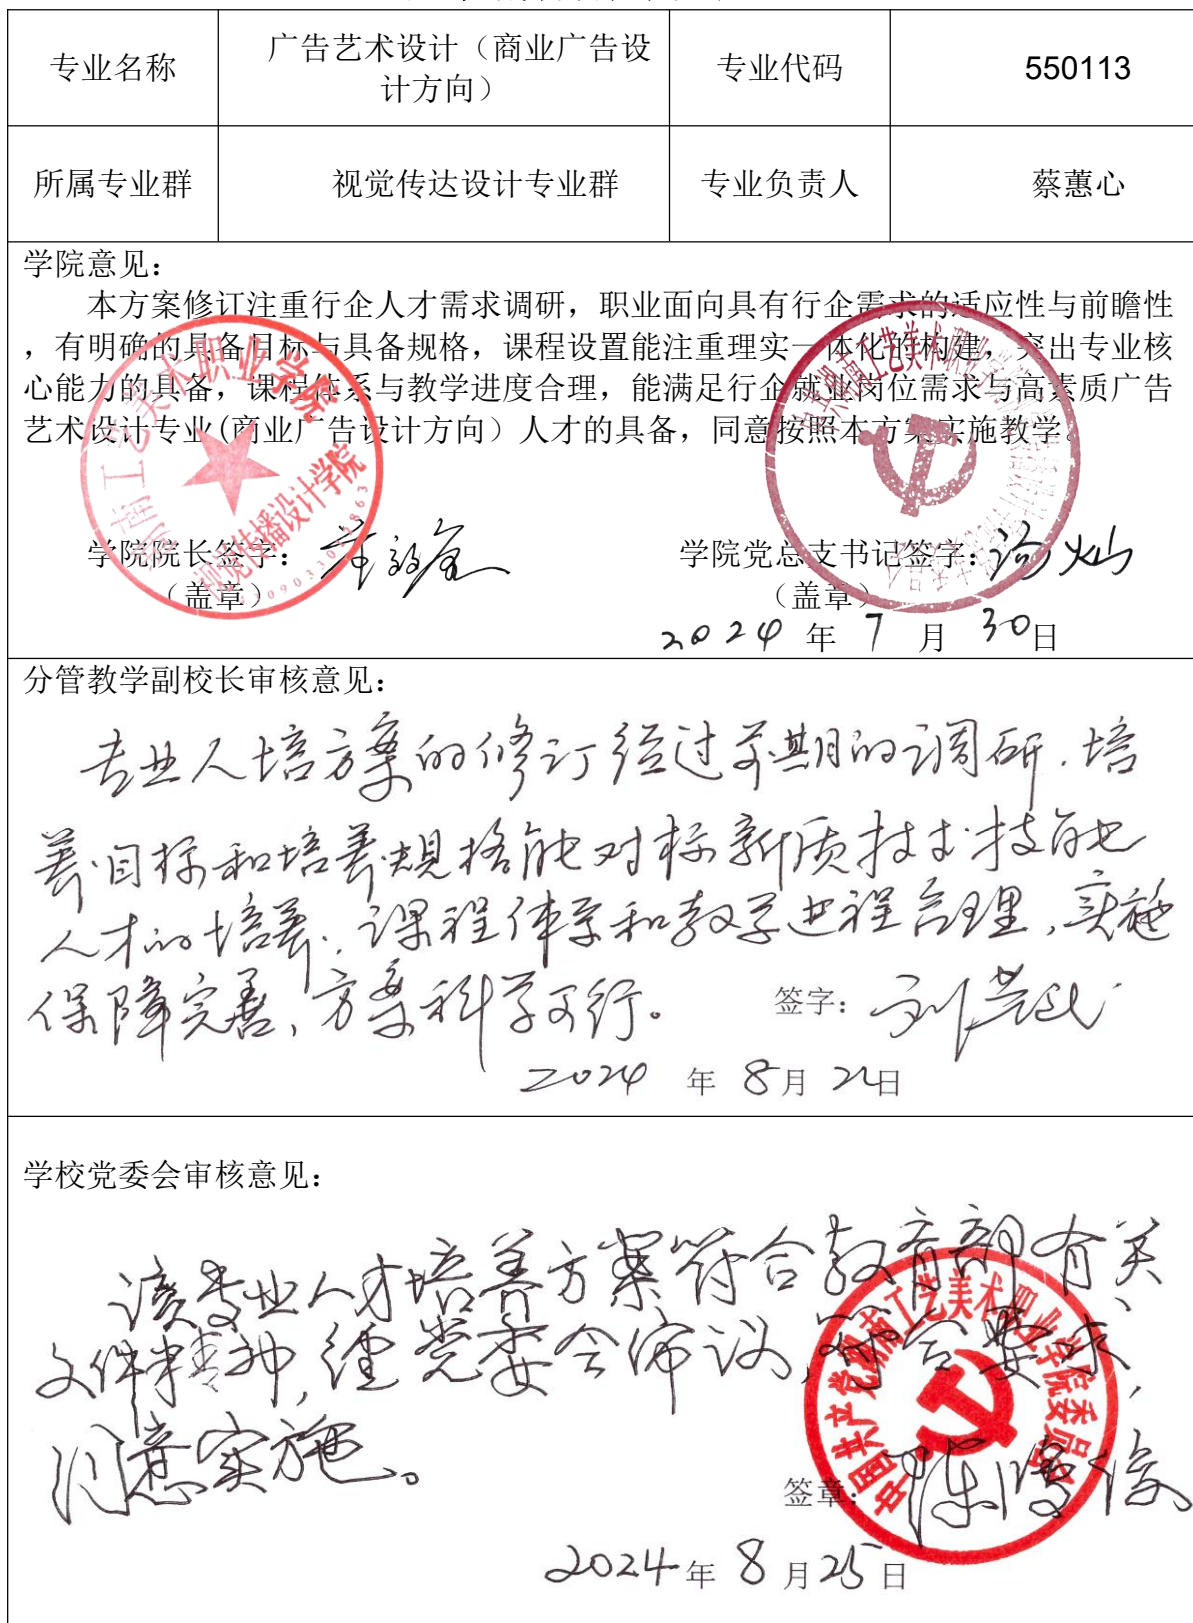 专业名称
广告艺术设计（商业广告设
计方向）
专业代码
550113
所属专业群
视觉传达设计专业群
专业负责人
蔡蕙心
学院意见：
本方案修订注重行企人才需求调研，职业面向具有行企需求的适应性与前瞻性
，有明确的具备目标与具备规格，课程设置能注重理实一体化的构建，突出专业核
心能力的具备，课程体系与教学进度合理，能满足行企就业岗位需求与高素质广告
艺术设计专业(商业广告设计方向）人才的具备，同意按照本方案实施教学。
湖南工艺美术职业学院
视觉传播设计学院
学院院长签字：
（盖章）
学院党总支书记签字：
（盖章）
2024 年 7 月 30日
分管教学副校长审核意见：
专业人培方案的修订经过前期的调研，培
养目标和培养规格能对标新质技术技能
人才的培养，课程体系和教学进程合理，实施
保障完善，方案科学可行。
签字：
2024 年 8月 22日
学校党委会审核意见：
该专业人才培养方案符合教育部有关
文件精神，经党委会审议，符合要求，
同意实施。
中国共产党湖南工艺美术职业学院委员会
签章：
2024年 8 月25日